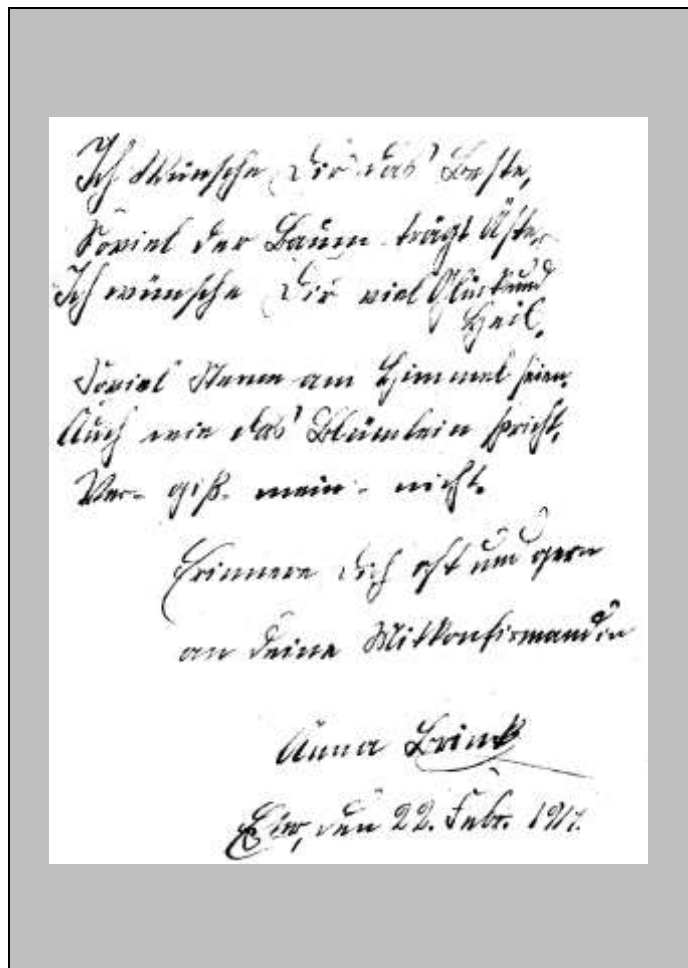 Ich wünsche Dir das Beste,
Soviel der Baum trägt Äste,
Ich wünsche Dir viel Glück und
Heil,
Soviel Sterne am Himmel seien,
Auch wie das Blümlein spricht,
Ver- giß- mein- nicht.
Erinnere Dich oft und gern
an Deine Mitkonfirmandin
Anna Brink
den 22. Febr. 1917.